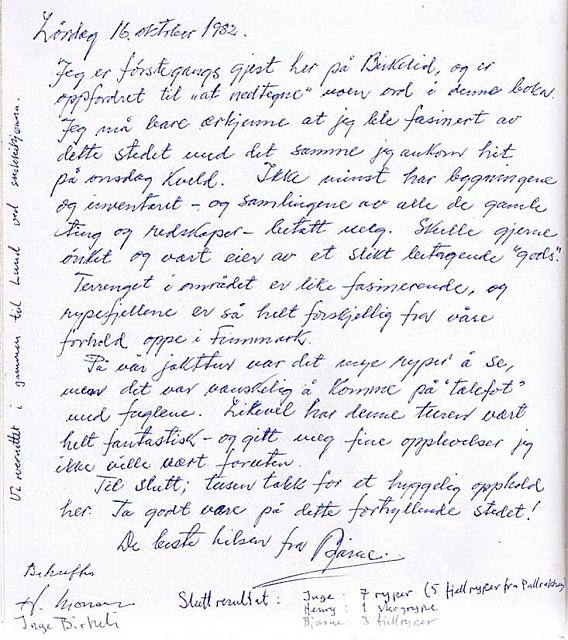 Lördag 16. oktober 1982.
Jeg er förstegangs gjest her på Birkelid, og er
oppfordret til "at nedtegne" noen ord i denne boka.
Jeg må bare erkjenne at jeg ble fasinert av
dette stedet med det samme jeg ankom hit,
på onsdag kveld. Ikke minst har bygningene
og inventaret - og samlingene av alle de gamle
ting og redskaper - betatt meg. Skulle gjerne
önket og vært eier av et slikt betagende "gods".
Terrenget i området er like fasinerende, og
rypefjellene er så helt forskjellig fra våre
forhold oppe i Finnmark.
På vår jakttur var det mye ryper å se,
men det var vanskelig å komme på "talefot"
med fuglene. Likevel har denne turen vært
helt fantastisk - og gitt meg fine opplevelser jeg
ikke ville vært foruten.
Til slutt; tusen takk for et hyggelig opphold
her. Ta godt vare på dette fortryllende stedet!
De beste hilsen fra Bjarne.
Bekreftes
H. Monsen
Inge Birkeli
Sluttresultat: Inge: 7 ryper (5 fjellryper fra
Henry: 1 skogrype
Bjarne: 3 fjellryper
Vi overnattet i gammen til Lund ved